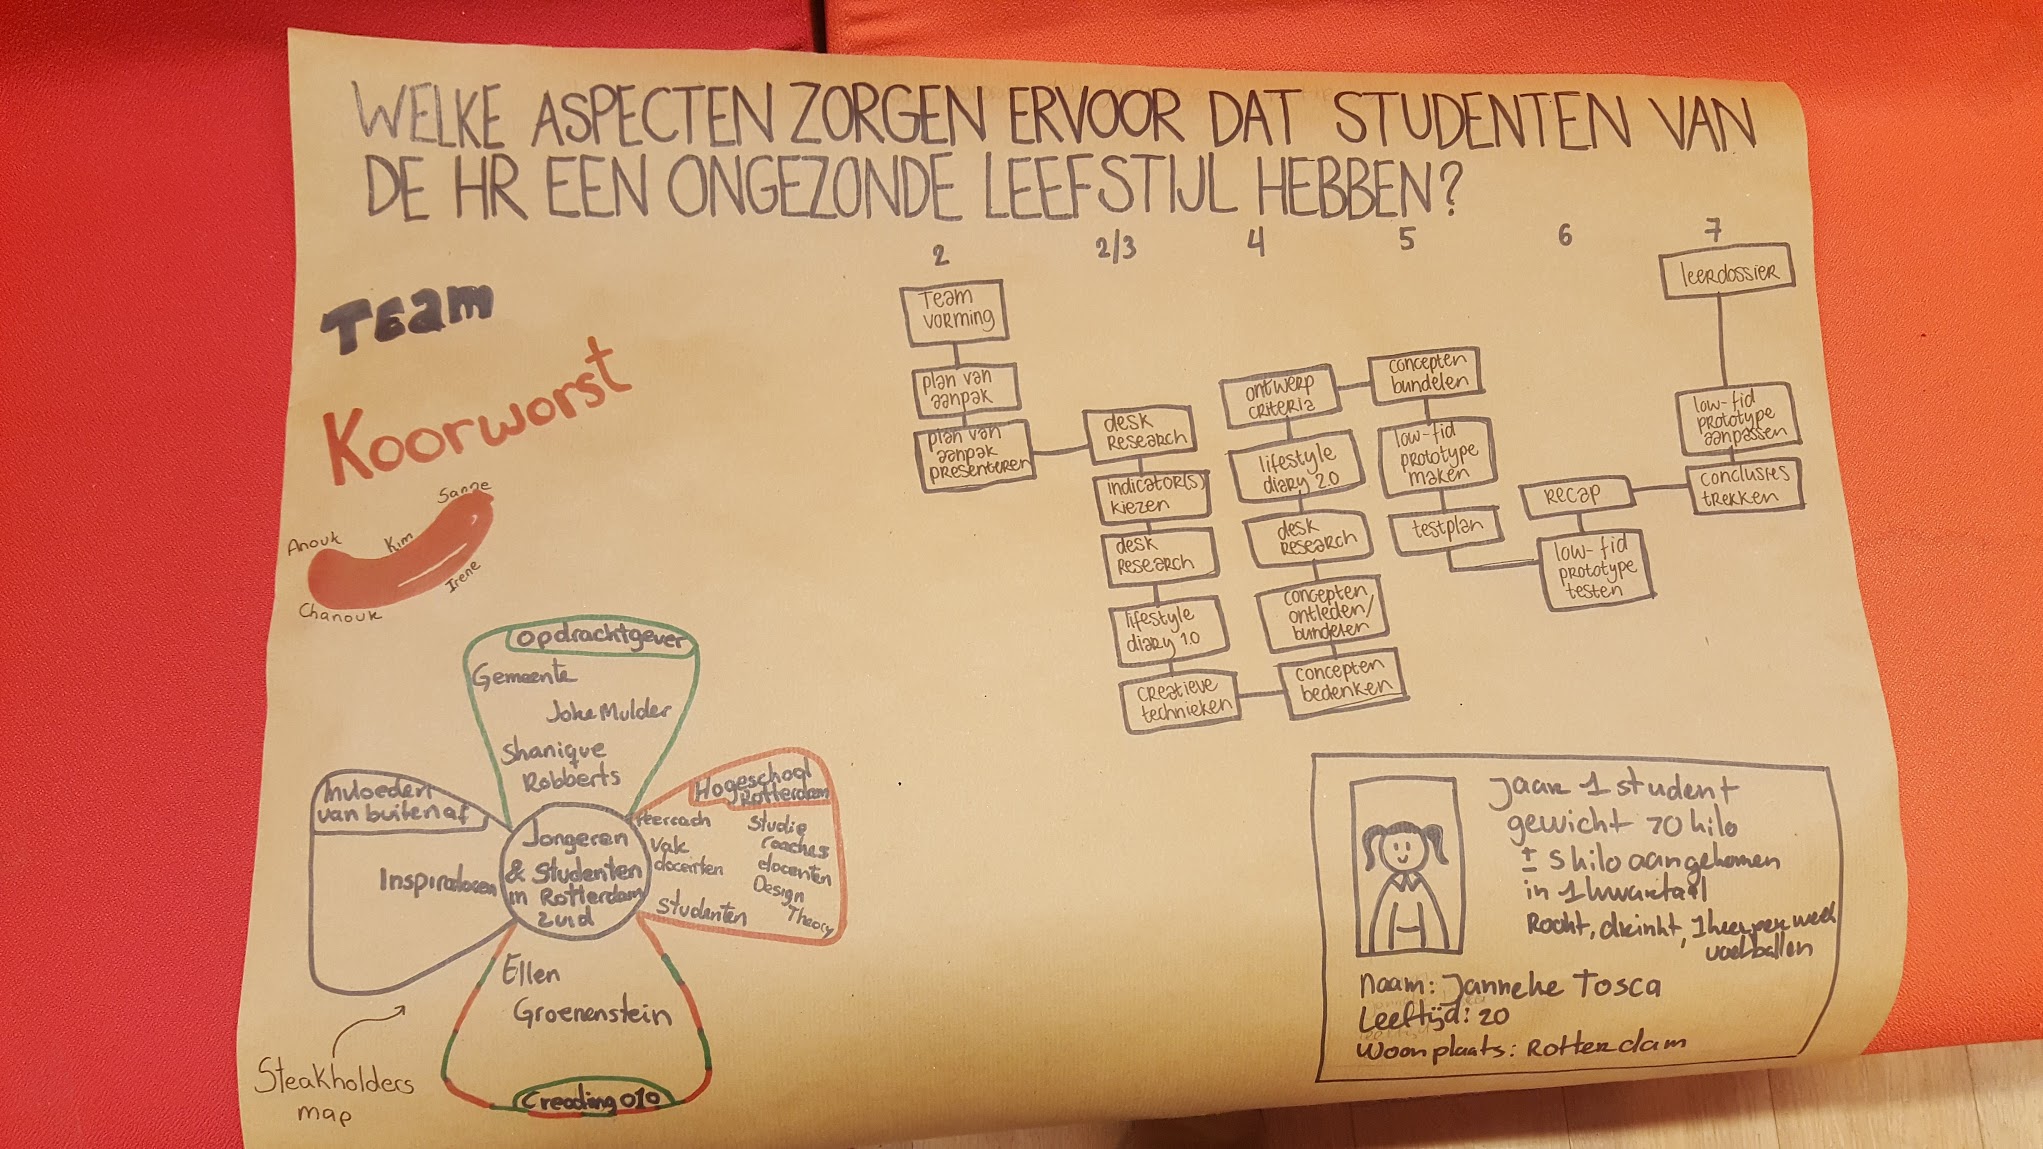 WELKE ASPECTEN ZORGEN ERVOOR DAT STUDENTEN VAN
DE HR EEN ONGEZONDE LEEFSTIJL HEBBEN?
Team
Koorworst
Sanne
Anouk
Kim
Irene
Chanouk
2
2/3
4
5
6
7
Team
vorming
plan van
aanpak
plan van
aanpak
presenteren
desk
research
indicator(s)
kiezen
desk
research
lifestyle
diary 1.0
creatieve
technieken
ontwerp
criteria
lifestyle
diary 2.0
desk
research
concepten
ontleden/
bundelen
concepten
bedenken
concepten
bundelen
low-fid
prototype
maken
testplan
recap
low-fid
prototype
testen
leerdossier
low-fid
prototype
aanpassen
conclusies
trekken
opdrachtgever
Gemeente
Joke Mulder
Shanique
Robberts
Invloeden
van buiten af
Jongeren
& Studenten
in Rotterdam
zuid
Hogeschool
Rotterdam
Peercoach
Vak
docenten
Studenten
Studie
Coaches
docenten
Design
Theory
Ellen
Groenenstein
Creading 010
Steakholders
map
Jaar 1 student
gewicht 70 kilo
± 5 kilo aangekomen
in 1 kwartaal
Rookt, drinkt, 1 keer per week
voetballen
Naam: Janneke Tosca
Leeftijd: 20
Woonplaats: Rotterdam